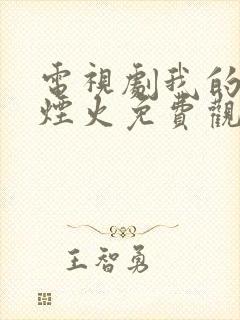 電視劇我的
煙火免費觀
王智勇